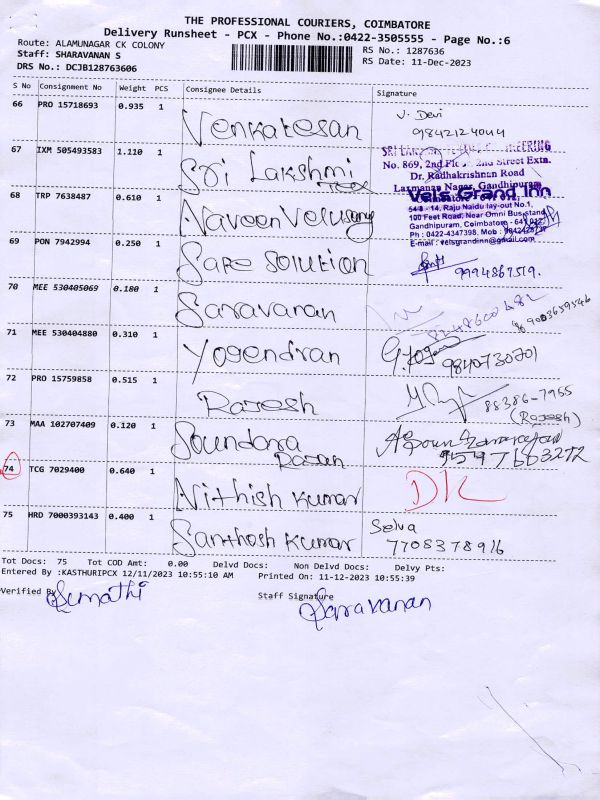 THE PROFESSIONAL COURIERS, COIMBATORE
Delivery Runsheet - PCX - Phone No.:0422-3505555 - Page No.:6
Route: ALAMUNAGAR CK COLONY
RS No.: 1287636
Staff: SHARAVANAN S
RS Date: 11-Dec-2023
DRS No.: DCJB128763606
S No Consignment No Weight PCS Consignee Details Signature
66 PRO 15718693 0.935 1 Venkatesan V. Devi
9842124044
67 IXM 505493583 1.110 1 Sri Lakshmi Tex
No. 869, 2nd Floor, 2nd Street Extn.
Dr. Radhakrishnan Road
Laxmanan Nagar, Gandhipuram
68 TRP 7638487 0.610 1 Naveen Velusamy
Vels Grand Inn
54/8 - 14, Raju Naidu lay-out No.1,
100 Feet Road, Near Omni Bus stand
Gandhipuram, Coimbatore - 641 012
Ph : 0422-4347398, Mob :
E-mail : velsgrandinn@gmail.com
69 PON 7942994 0.250 1 Safe Solution
9994867519.
70 MEE 530405069 0.180 1 Saravanan
9003659546
71 MEE 530404880 0.310 1 Yogendran G. Yoga
9840730701
72 PRO 15759858 0.515 1 Rajesh
88386-7955
(Rajesh)
73 MAA 102707409 0.120 1 Soundara Rajan
9597663272
74 TCG 7029400 0.640 1 Nithish Kumar D/L
75 HRD 7000393143 0.400 1 Santhosh Kumar Selva
7708378916
Tot Docs: 75 Tot COD Amt: 0.00 Delvd Docs: Non Delvd Docs: Delvy Pts:
Entered By :KASTHURIPCX 12/11/2023 10:55:10 AM Printed On: 11-12-2023 10:55:39
Verified By Sumathi
Staff Signature Saravanan